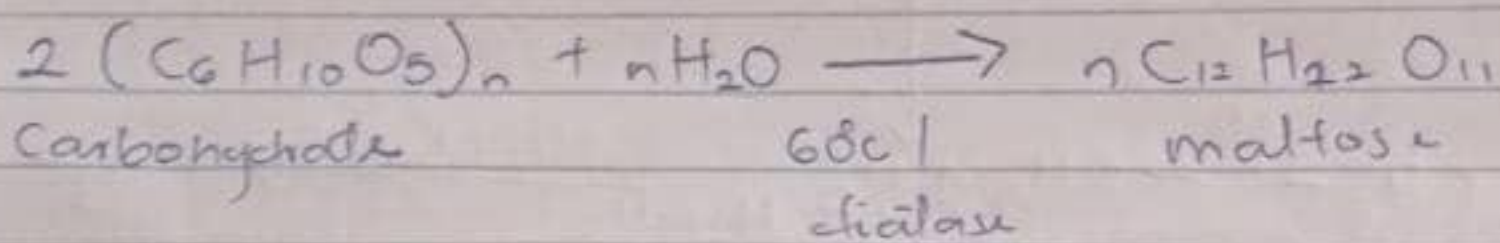 2 (C₆H₁₀O₅)ₙ + nH₂O ⟶ n C₁₂H₂₂O₁₁
Carbohydrate 60c | maltose
diatase